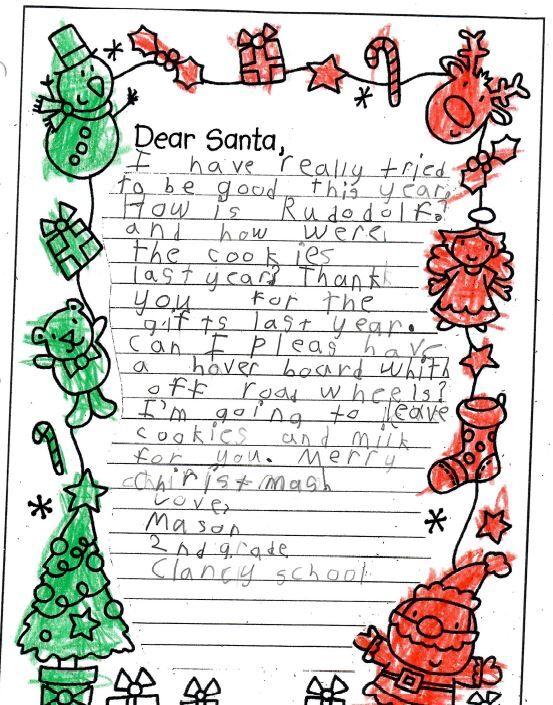 Dear Santa,
I have really tried
to be good this year.
How is Rudodolf?
and how were
the cookies
last year? Thank
you for the
gifts last year.
can I pleas have
a hover board whith
off road wheels?
I'm going to leave
cookies and milk
for you. Merry
Christmash
Love,
Mason
2nd grade
Clancy school